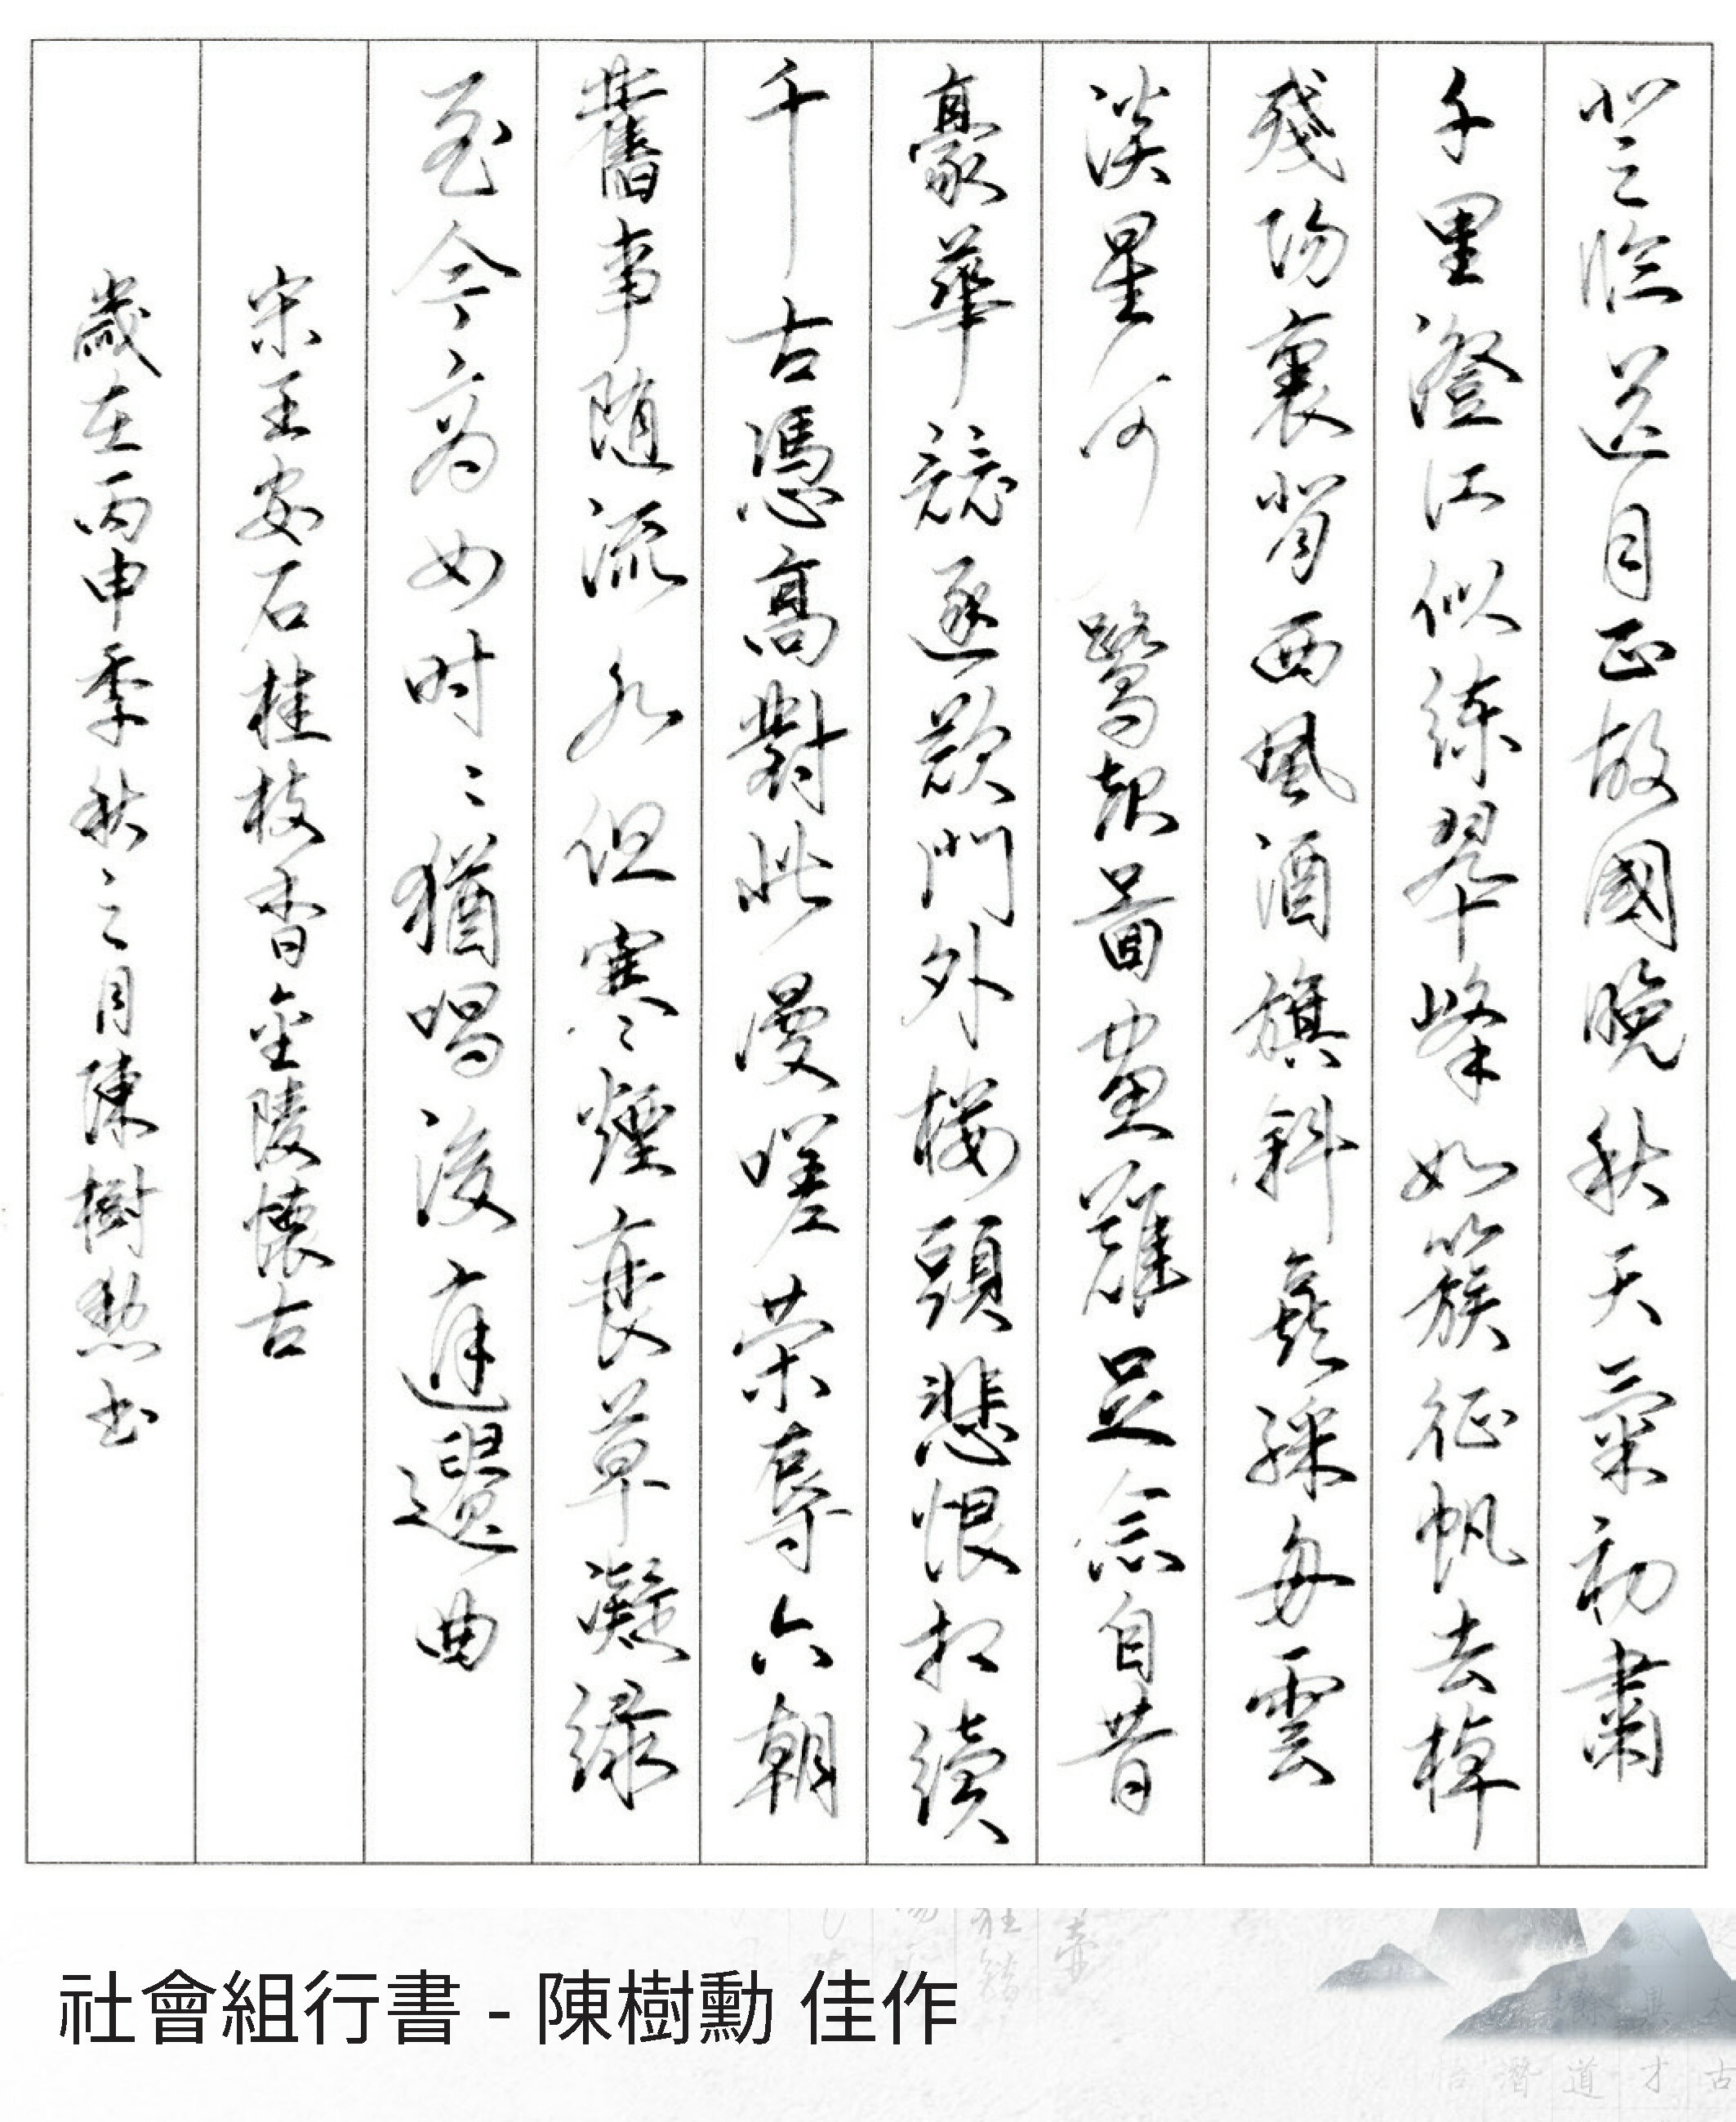 登臨送目正故國晚秋天氣初肅
千里澄江似練翠峰如簇征帆去棹
殘陽裏背西風酒旗斜矗綵舟雲
淡星河鷺起圖畫難足念自昔
豪華競逐歎門外樓頭悲恨相續
千古憑高對此漫嗟榮辱六朝
舊事隨流水但寒煙衰草凝綠
至今商女时〻猶唱後庭遺曲
宋王安石桂枝香金陵懷古
歲在丙申季秋之月陳樹勲書
社會組行書 - 陳樹勳 佳作